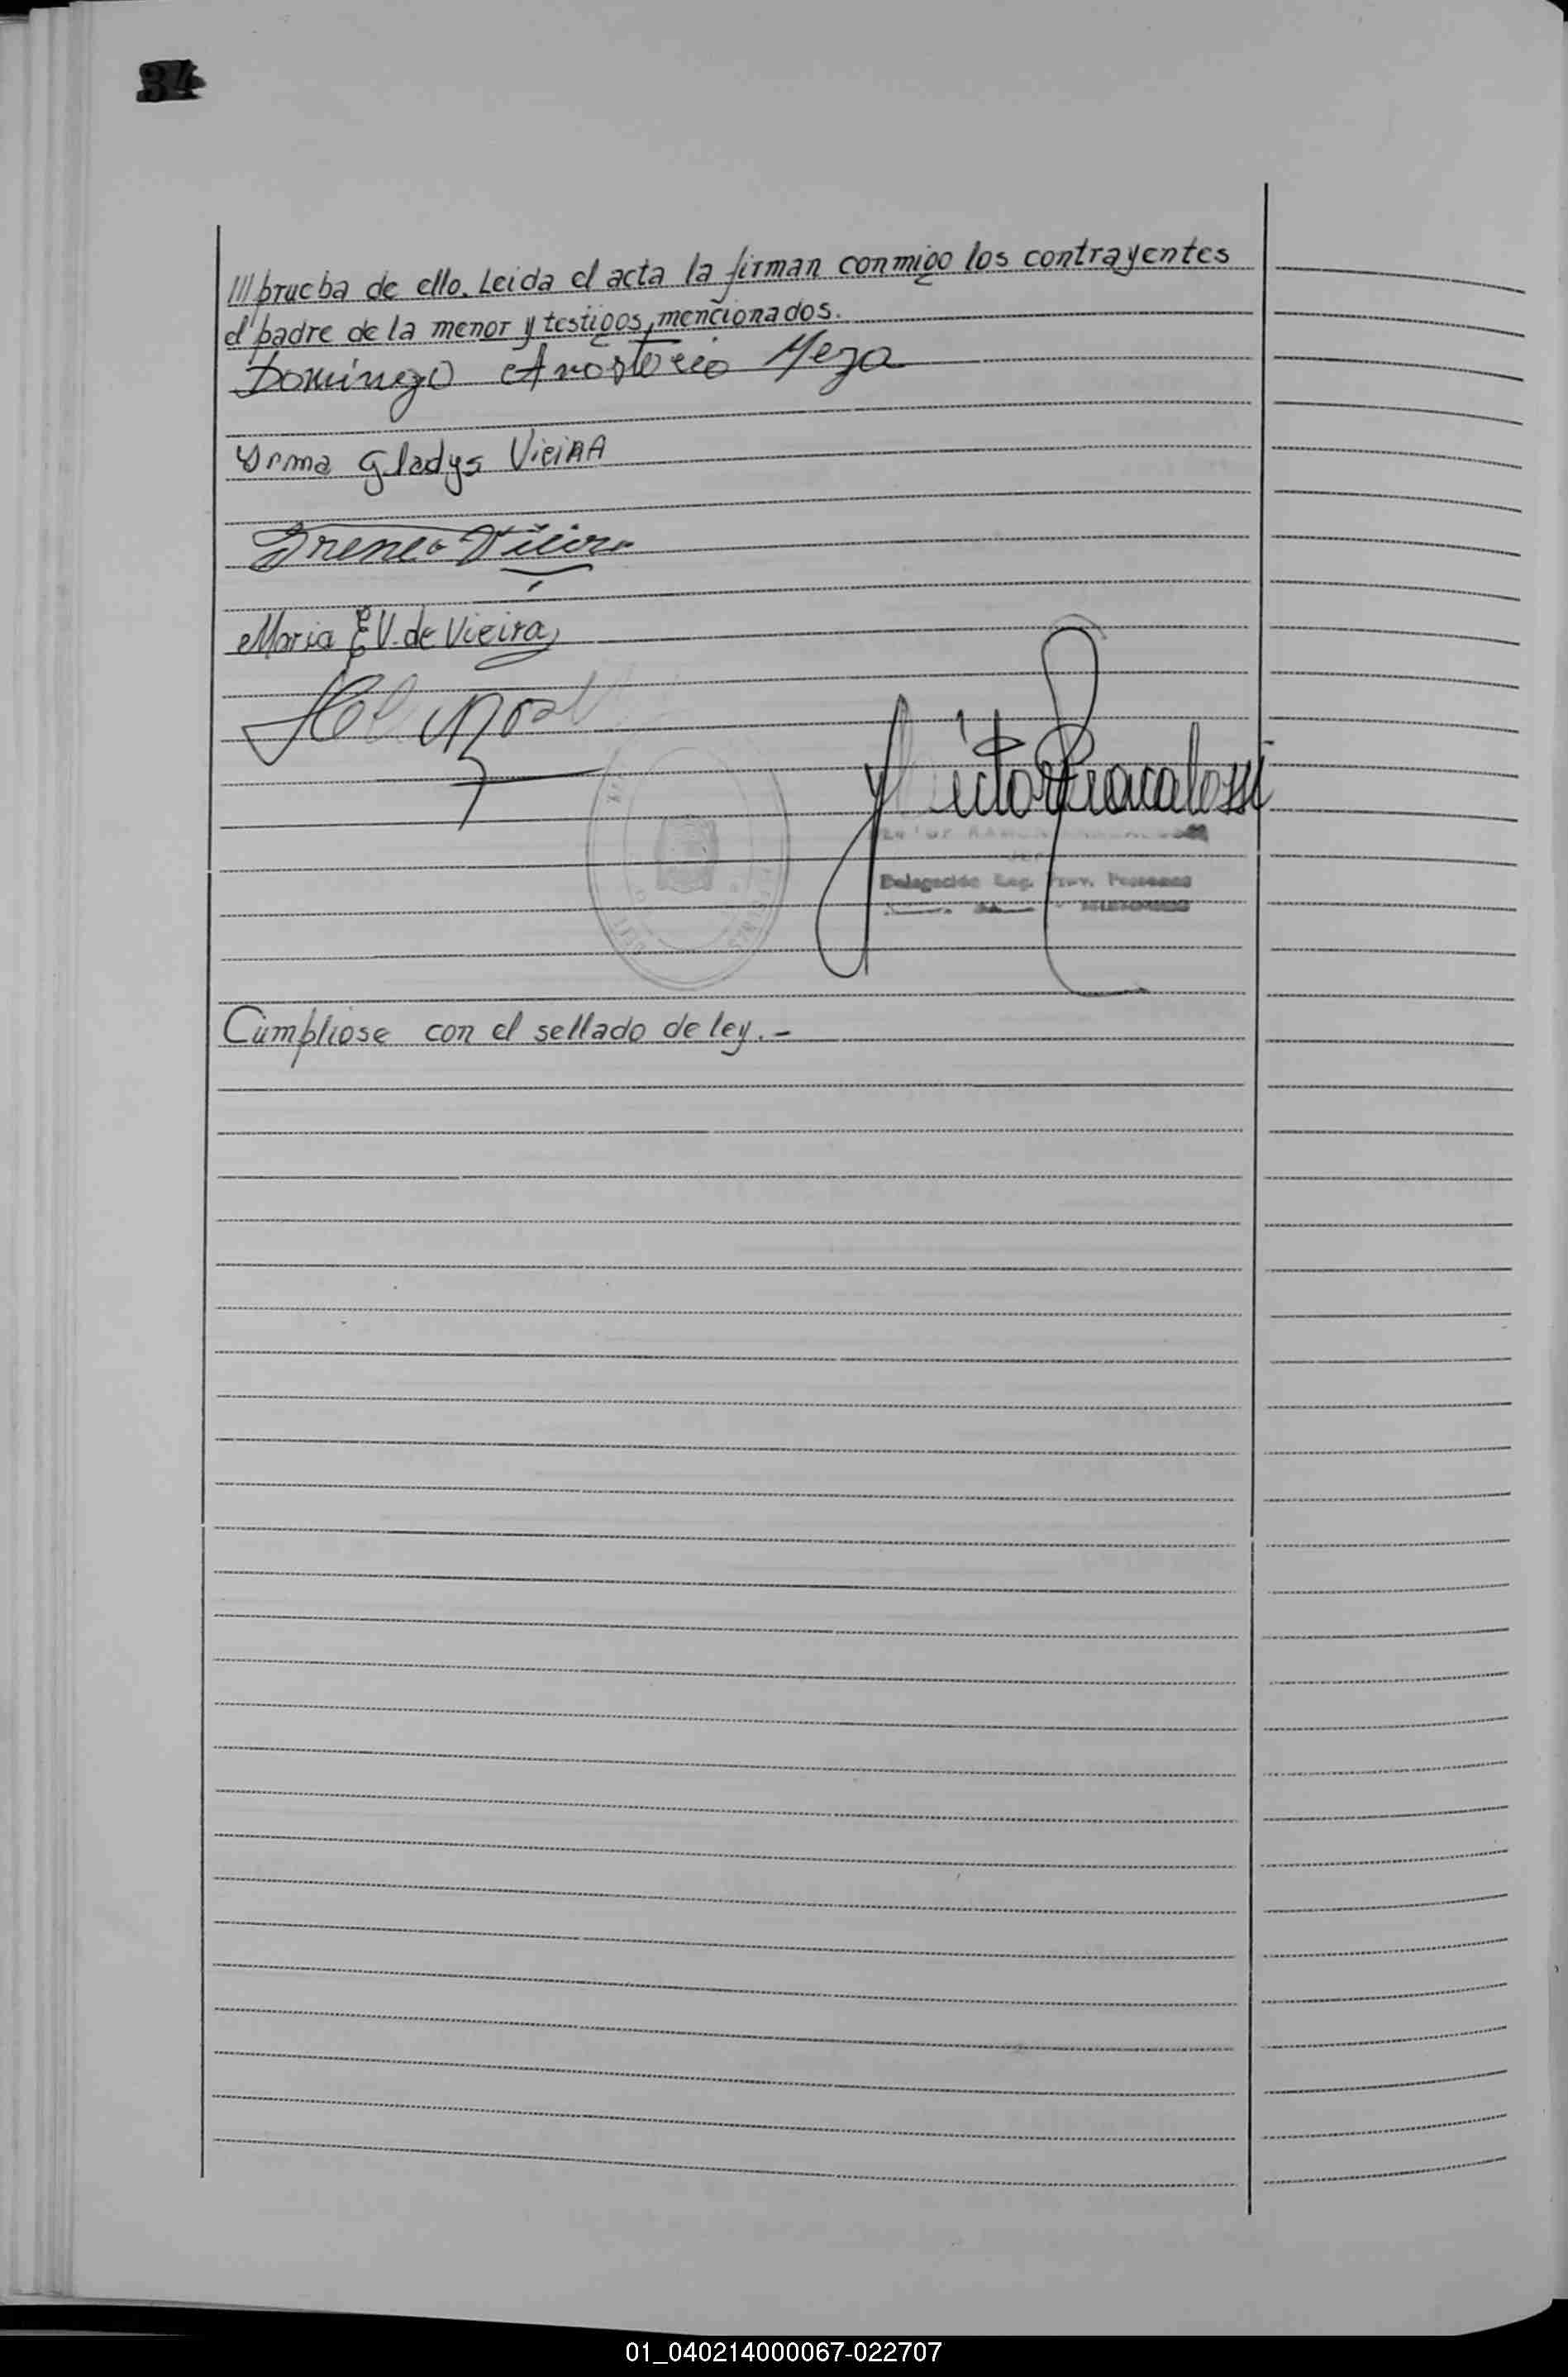 34
///prueba de ello. Leida el acta la firman conmigo los contrayentes
el padre de la menor y testigos, mencionados.
Domingo Anastacio Meza
Yrma Gladys VieiRA
Ireneo Vieira
Maria E V. de Vieira
Victor Bracalossi
Delegación Reg. Prov. Personas
Cúmpliose con el sellado de ley.-
01_040214000067-022707